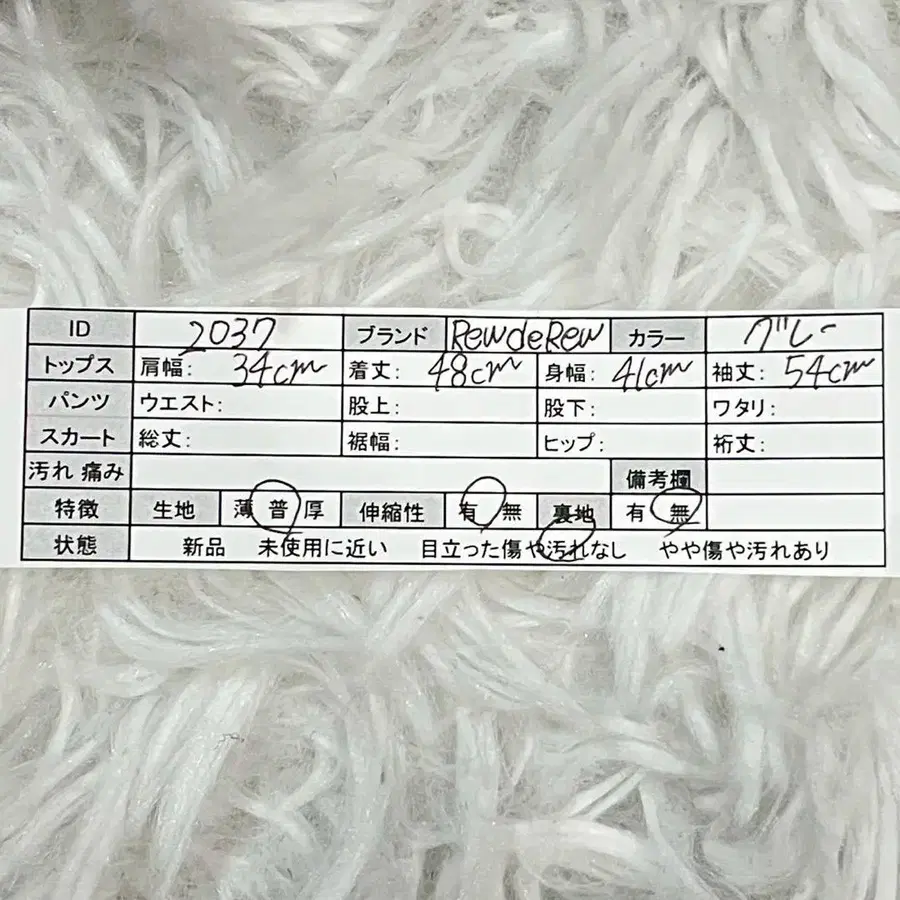 ID 2037 ブランド RewdeRew カラー グレー
トップス 肩幅: 34cm 着丈: 48cm 身幅: 41cm 袖丈: 54cm
パンツ ウエスト: 股上: 股下: ワタリ:
スカート 総丈: 裾幅: ヒップ: 裄丈:
汚れ 痛み 備考欄
特徴 生地 薄 普 厚 伸縮性 有 無 裏地 有 無
状態 新品 未使用に近い 目立った傷や汚れなし やや傷や汚れあり